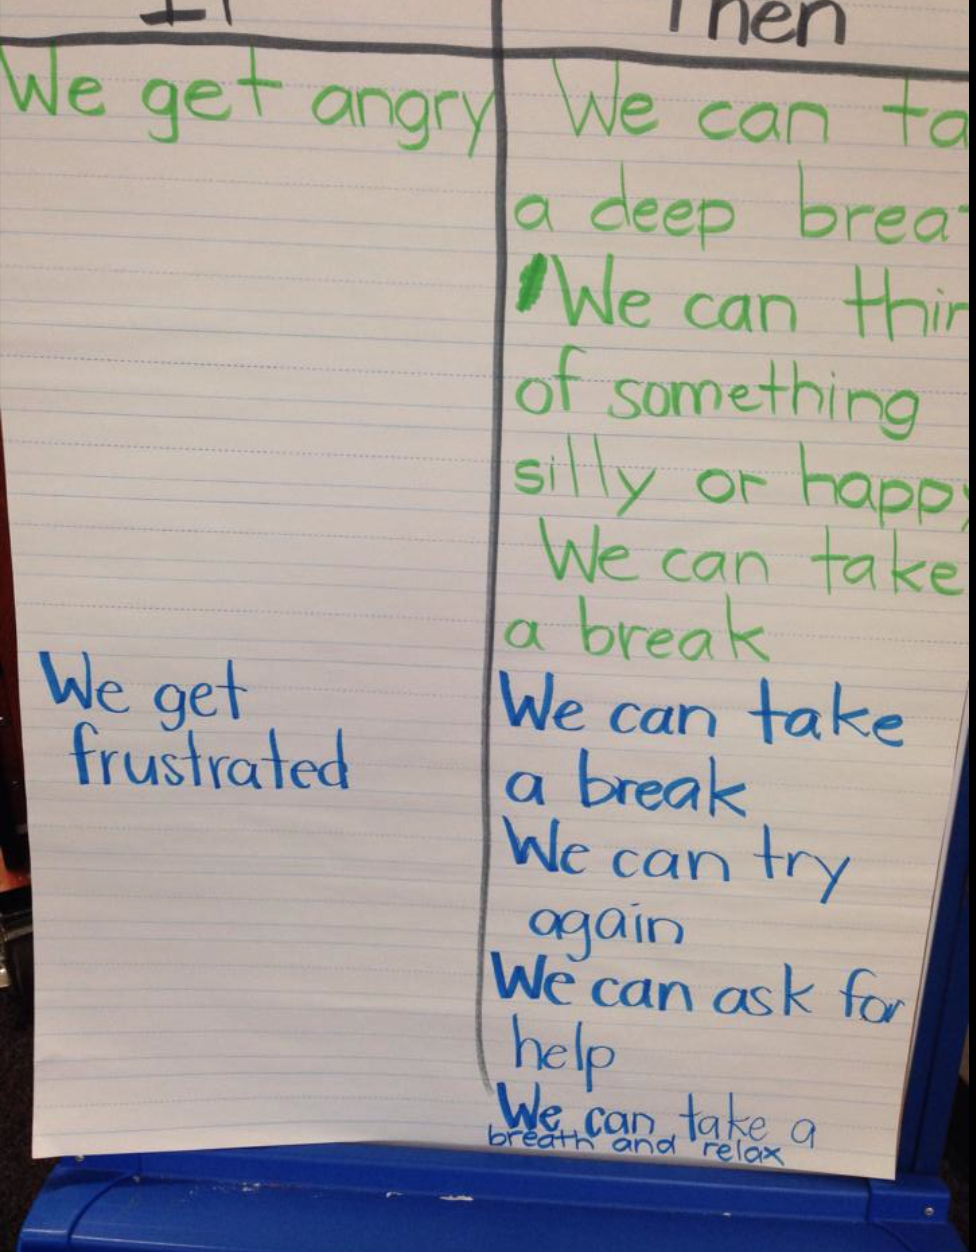 If Then
We get angry We can ta
a deep brea
We can thin
of something
silly or happy
We can take
a break
We get We can take
frustrated a break
We can try
again
We can ask for
help
We can take a
breath and relax